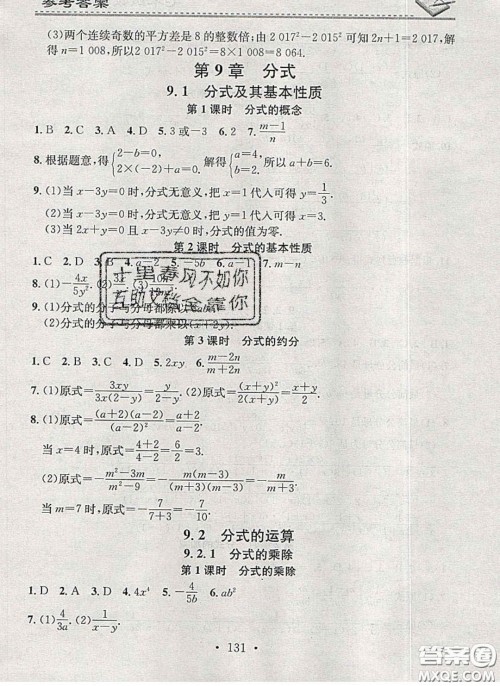 参考答案
(3)两个连续奇数的平方差是8的整数倍;由 2 017²－2 015² 可知 2n＋1＝2 017,解
得 n＝1 008,所以 2 017²－2 015²＝8×1 008＝8 064.
第9章　分式
9.1　分式及其基本性质
第1课时　分式的概念
1. B　2. C　3. A　4. D　5. 3或－3　6. 2　7. (m－1)/n
8. 根据题意,得{2－b＝0, 2×(－2)＋a＝0.　解得{a＝4, b＝2.　所以 a＋b＝6.
9. (1)当 x－3y＝0 时,分式无意义,把 x＝1 代入可得 y＝1/3.
(2)当 x－3y＝0 时,分式无意义,把 y＝1 代入可得 x＝3.
(3)当 2x＝0 且 x－3y≠0 时,分式的值为零.
第2课时　分式的基本性质
1. C　2. A　3. D　4. 2　5. －5b　6. a－1　7. m－n
8. (1)－4x/5y²
9. (1)分式的分子与分母都除以
(2)分式的分子与分母都乘以(x＋2y).
十里春风不如你
互助文档全靠你
第3课时　分式的约分
1. C　2. B　3. C　4. D　5. 2xy　6. (m－2n)/(m＋2n)
7. (1)原式＝3xy/3x(2－y)＝y/(2－y).　(2)原式＝(x＋y)²/2(x＋y)＝(x＋y)/2.
8. (1)原式＝(a＋2)(a－2)/(a－2)²＝(a＋2)/(a－2).
当 x＝4 时,原式＝(4＋2)/(4－2)＝6/2＝3.
(2)原式＝－(m²－3m)/(m²－9)＝－m(m－3)/(m＋3)(m－3)＝－m/(m＋3).
当 m＝7 时,原式＝－7/(7＋3)＝－7/10.
9.2　分式的运算
9.2.1　分式的乘除
第1课时　分式的乘除
1. D　2. A　3. D　4. 4x⁴　5. －4/5b　6. ab²
7. (1)4/3a.　(2)1/(x－y).
· 131 ·
答案圈
MXQE.COM